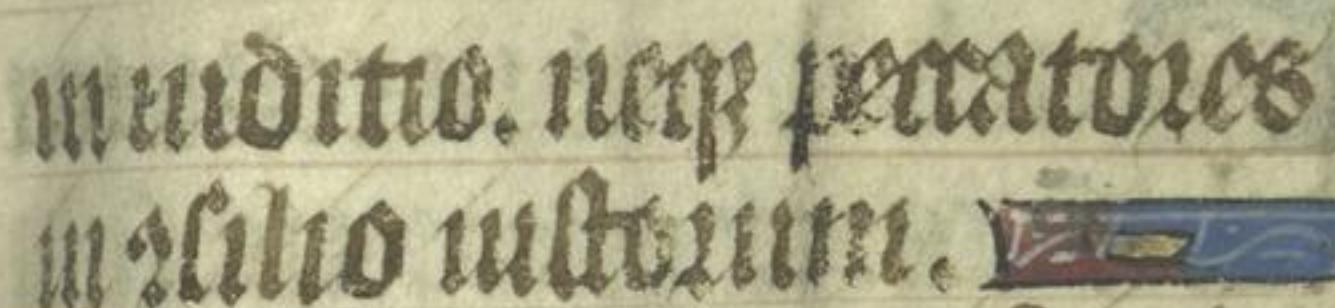 in iuditio. neqꝫ peccatores
in ꝯsilio iustorum.